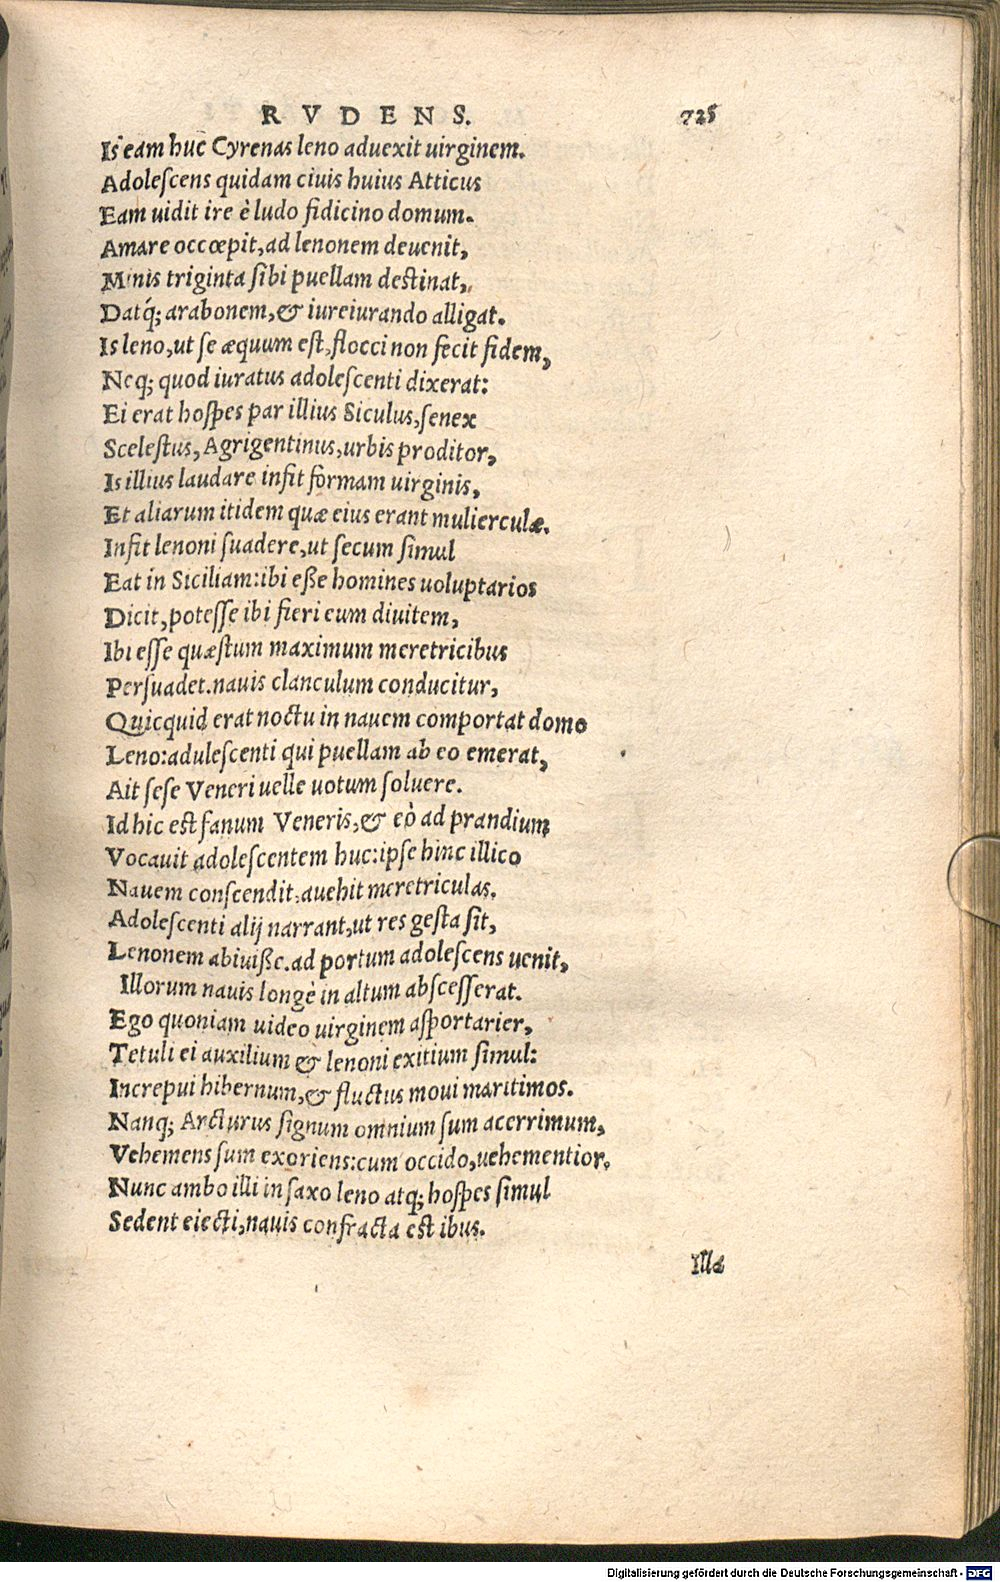 RVDENS. 725
Is eam huc Cyrenas leno aduexit uirginem.
Adolescens quidam ciuis huius Atticus
Eam uidit ire è ludo fidicino domum.
Amare occœpit, ad lenonem deuenit,
Minis triginta sibi puellam destinat,
Datq́; arabonem, & iureiurando alligat.
Is leno, ut se æquum est, flocci non fecit fidem,
Neq; quod iuratus adolescenti dixerat:
Ei erat hospes par illius Siculus, senex
Scelestus, Agrigentinus, urbis proditor,
Is illius laudare infit formam uirginis,
Et aliarum itidem quæ eius erant mulierculæ.
Infit lenoni suadere, ut secum simul
Eat in Siciliam: ibi eße homines uoluptarios
Dicit, potesse ibi fieri eum diuitem,
Ibi esse quæstum maximum meretricibus
Persuadet. nauis clanculum conducitur,
Quicquid erat noctu in nauem comportat domo
Leno: adulescenti qui puellam ab eo emerat,
Ait sese Veneri uelle uotum soluere.
Id hic est fanum Veneris, & eò ad prandium
Vocauit adolescentem huc: ipse hinc illico
Nauem conscendit, auehit meretriculas.
Adolescenti alij narrant, ut res gesta sit,
Lenonem abiuiße. ad portum adolescens uenit,
Illorum nauis longè in altum abscesserat.
Ego quoniam uideo uirginem asportarier,
Tetuli ei auxilium & lenoni exitium simul:
Increpui hibernum, & fluctus moui maritimos.
Nanq; Arcturus signum omnium sum acerrimum,
Vehemens sum exoriens: cum occido, uehementior.
Nunc ambo illi in saxo leno atq; hospes simul
Sedent eiecti, nauis confracta est ibus.
Illa
Digitalisierung gefördert durch die Deutsche Forschungsgemeinschaft - DFG